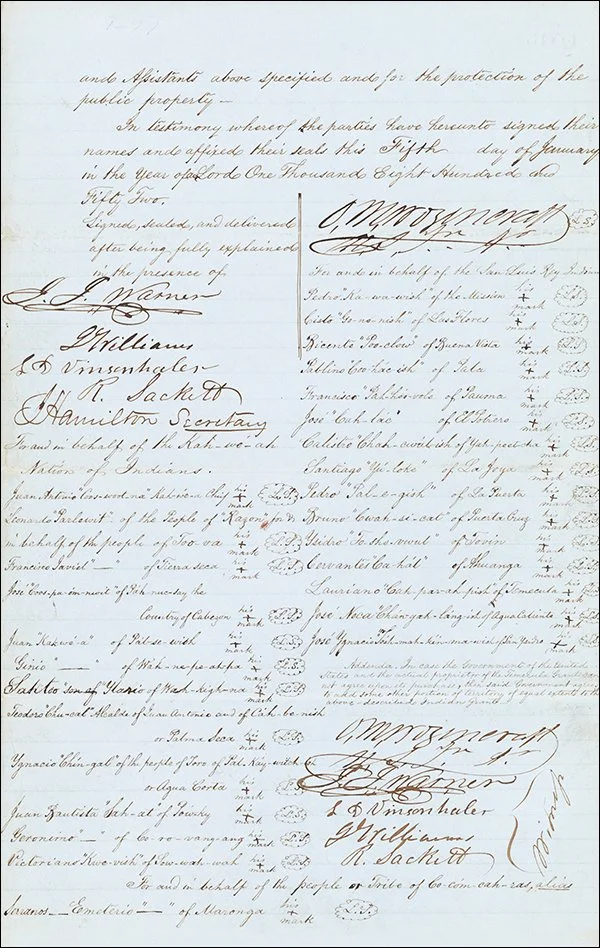 and Assistants above specified and for the protection of the
public property —
In testimony whereof the parties have hereunto signed their
names and affixed their seals this Fifth day of January
in the Year of Lord One Thousand Eight Hundred and
Fifty Two.
Signed, sealed, and delivered
after being fully explained
in the presence of
J. J. Warner
J Williams
L D Vinsonhaler
R. Sackett
J Hamilton Secretary
For and in behalf of the Kah-wé-ah
Nation of Indians.
Juan Antonio "Coos-wood-na" Kah-we-a Chief his + mark (L.S.)
Leonardo "Parlewit" of the People of Razon, for &
in behalf of the people of Too va his + mark (L.S.)
Francisco Javiel "—" of Tierra seca his + mark (L.S.)
José "Coos-pa-om-nu-it" of Pah-nuc-say the
Country of Cabezon his + mark (L.S.)
Juan "Kah-we-a" of Pal-se-wish his + mark (L.S.)
"Ginio" "—" of Wah-ne-pe-ah-pa his + mark (L.S.)
Sahtoo "son of" Ylario of Wah-kigh-na his + mark (L.S.)
Teodoro "Chu-cal" Alcalde of Juan Antonio and of Cah-be-nish
or Palma Seca his + mark (L.S.)
Ygnacio "Chin-gal" of the people of Toro of Pal-kay-witch-ish
or Agua Corta his + mark (L.S.)
Juan Bautista "Sah-at" of Powsky his + mark (L.S.)
Geronimo "—" of Co-ro-vang-ang his + mark (L.S.)
Victoriano "Kwe-vish" of Sow-wah-wah his + mark (L.S.)
O, M, Wozencraft (L.S.)
For and in behalf of the San Luis Rey Indians
Pedro "Ka-wa-wish" of the Mission his + mark (L.S.)
Cisto "Go-no-nish" of Las Flores his + mark (L.S.)
Bicente "Poo-clow" of Buena Vista his + mark (L.S.)
Pablino "Coo-hac-ish" of Pala his + mark (L.S.)
Francisco "Pah-hoo-vole" of Pauma his + mark (L.S.)
José "Cah-lac" of El Potrero his + mark (L.S.)
Calisto "Chah-cwal-ish" of Yah-peet-cha his + mark (L.S.)
Santiago "Yu-loke" of La Joya his + mark (L.S.)
Pedro "Pal-e-gish" of La Puerta his + mark (L.S.)
Bruno "Cwah-si-cat" of Puerta Cruz his + mark (L.S.)
Ysidro "To-sho-vwul" of Tovin his + mark (L.S.)
Cervantes "Ca-hal" of Ahuanga his + mark (L.S.)
Lauriano "Cah-par-ah-pish" of Temecula his + mark (L.S.)
José Noca "Chan-gah-lang-ish" of Agua Caliente his + mark (L.S.)
José Ygnacio "Tosh-mah-ken-ma-wish" of San Ysidro his + mark (L.S.)
Addenda. In case the Government of the United
States and the actual proprietor of the Temecula Grant can-
not agree upon its purchase, the said Government agrees
to add some other portions of territory of equal extent to the
above-described Indian Grant.
O M Wozencraft
J. J. Warner
L D Vinsonhaler
J Williams
R. Sackett
For and in behalf of the people or Tribe of Co-com-cah-ras, alias
Serranos — "Emeterio" — of Maronga his + mark (L.S.)